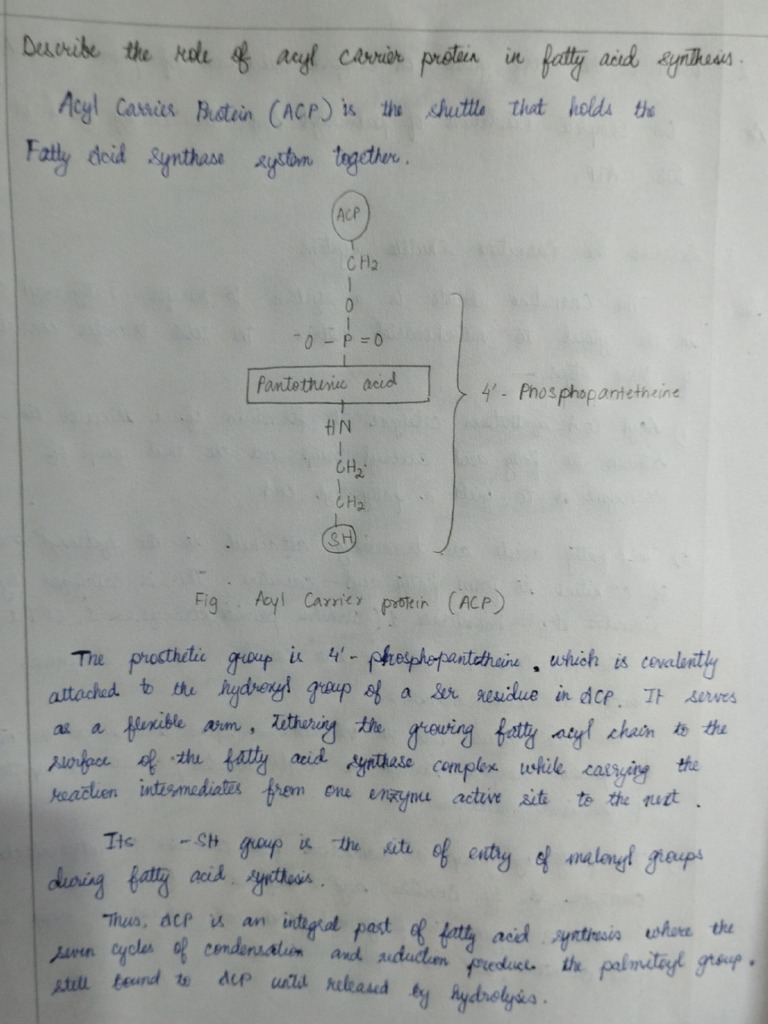 Describe the role of acyl carrier protein in fatty acid synthesis.
Acyl Carrier Protein (ACP) is the shuttle that holds the
Fatty Acid Synthase system together.
ACP
CH2
O
-O - P = O
Pantothenic acid
4' - Phosphopantetheine
HN
CH2
CH2
SH
Fig. Acyl Carrier protein (ACP)
The prosthetic group is 4' - phosphopantetheine, which is covalently
attached to the hydroxyl group of a Ser residue in ACP. It serves
as a flexible arm, tethering the growing fatty acyl chain to the
surface of the fatty acid synthase complex while carrying the
reaction intermediates from one enzyme active site to the next.
Its -SH group is the site of entry of malonyl groups
during fatty acid synthesis.
Thus, ACP is an integral part of fatty acid synthesis where the
seven cycles of condensation and reduction produce the palmitoyl group.
still bound to ACP until released by hydrolysis.